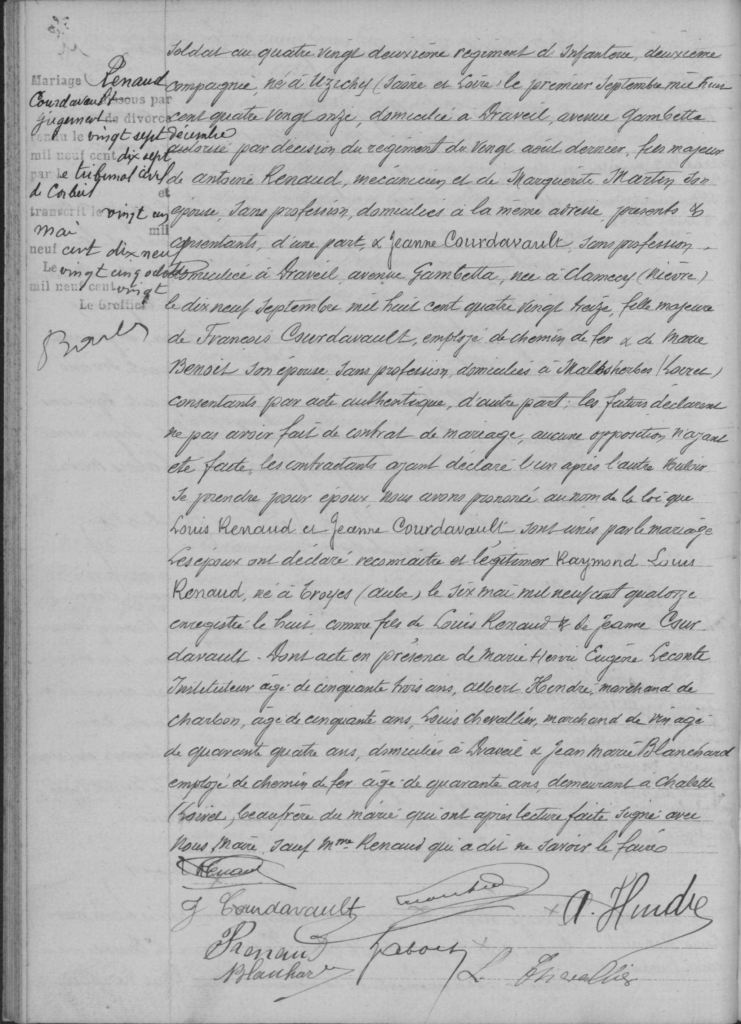 Mariage Renaud
Courdavault dissous par
jugement de divorce
rendu le vingt sept décembre
mil neuf cent dix sept
par le tribunal civil
de Corbeil et
transcrit le vingt un
mai mil
neuf cent dix neuf
Le vingt cinq octobre
mil neuf cent vingt
Le Greffier
soldat au quatre vingt deuxième régiment d'Infanterie, deuxième
compagnie, né à Uzichy (Saône et Loire) le premier septembre mil huit
cent quatre vingt onze, domicilié à Draveil, avenue Gambetta
autorisé par décision du régiment du vingt août dernier, fils majeur
de antoine Renaud, mécanicien et de Marguerite Martin son
épouse, sans profession, domiciliés à la même adresse, présents &
consentants, d'une part, & Jeanne Courdavault, sans profession
domiciliée à Draveil, avenue Gambetta, née à Clamecy (Nièvre)
le dix neuf septembre mil huit cent quatre vingt treize, fille majeure
de François Courdavault, employé de chemin de fer & de Marie
Benoit son épouse, sans profession, domiciliés à Malesherbes (Loiret)
consentants par acte authentique, d'autre part; les futurs déclarent
ne pas avoir fait de contrat de mariage, aucune opposition n'ayant
été faite, les contractants ayant déclaré l'un après l'autre vouloir
se prendre pour époux, nous avons prononcé au nom de la loi que
Louis Renaud et Jeanne Courdavault sont unis par le mariage
Les époux ont déclaré reconnaitre et légitimer Raymond Louis
Renaud, né à Troyes (Aube) le six mai mil neuf cent quatorze
enregistré le huit comme fils de Louis Renaud & de Jeanne Cour
davault. Dont acte en présence de Marie Henri Eugène Leconte
Instituteur âgé de cinquante trois ans, Albert Hindre, marchand de
charbon, âgé de cinquante ans, Louis Chevallier, marchand de vin âgé
de quarante quatre ans, domiciliés à Draveil & Jean Marie Blanchard
employé de chemin de fer âgé de quarante ans, demeurant à Chalette
(Loiret, beaufrère du marié qui ont après lecture faite signé avec
Nous Maire, sauf Mme Renaud qui a dit ne savoir le faire
Renaud
J Courdavault A. Hindre
Renaud
Blanchard L. Chevallier